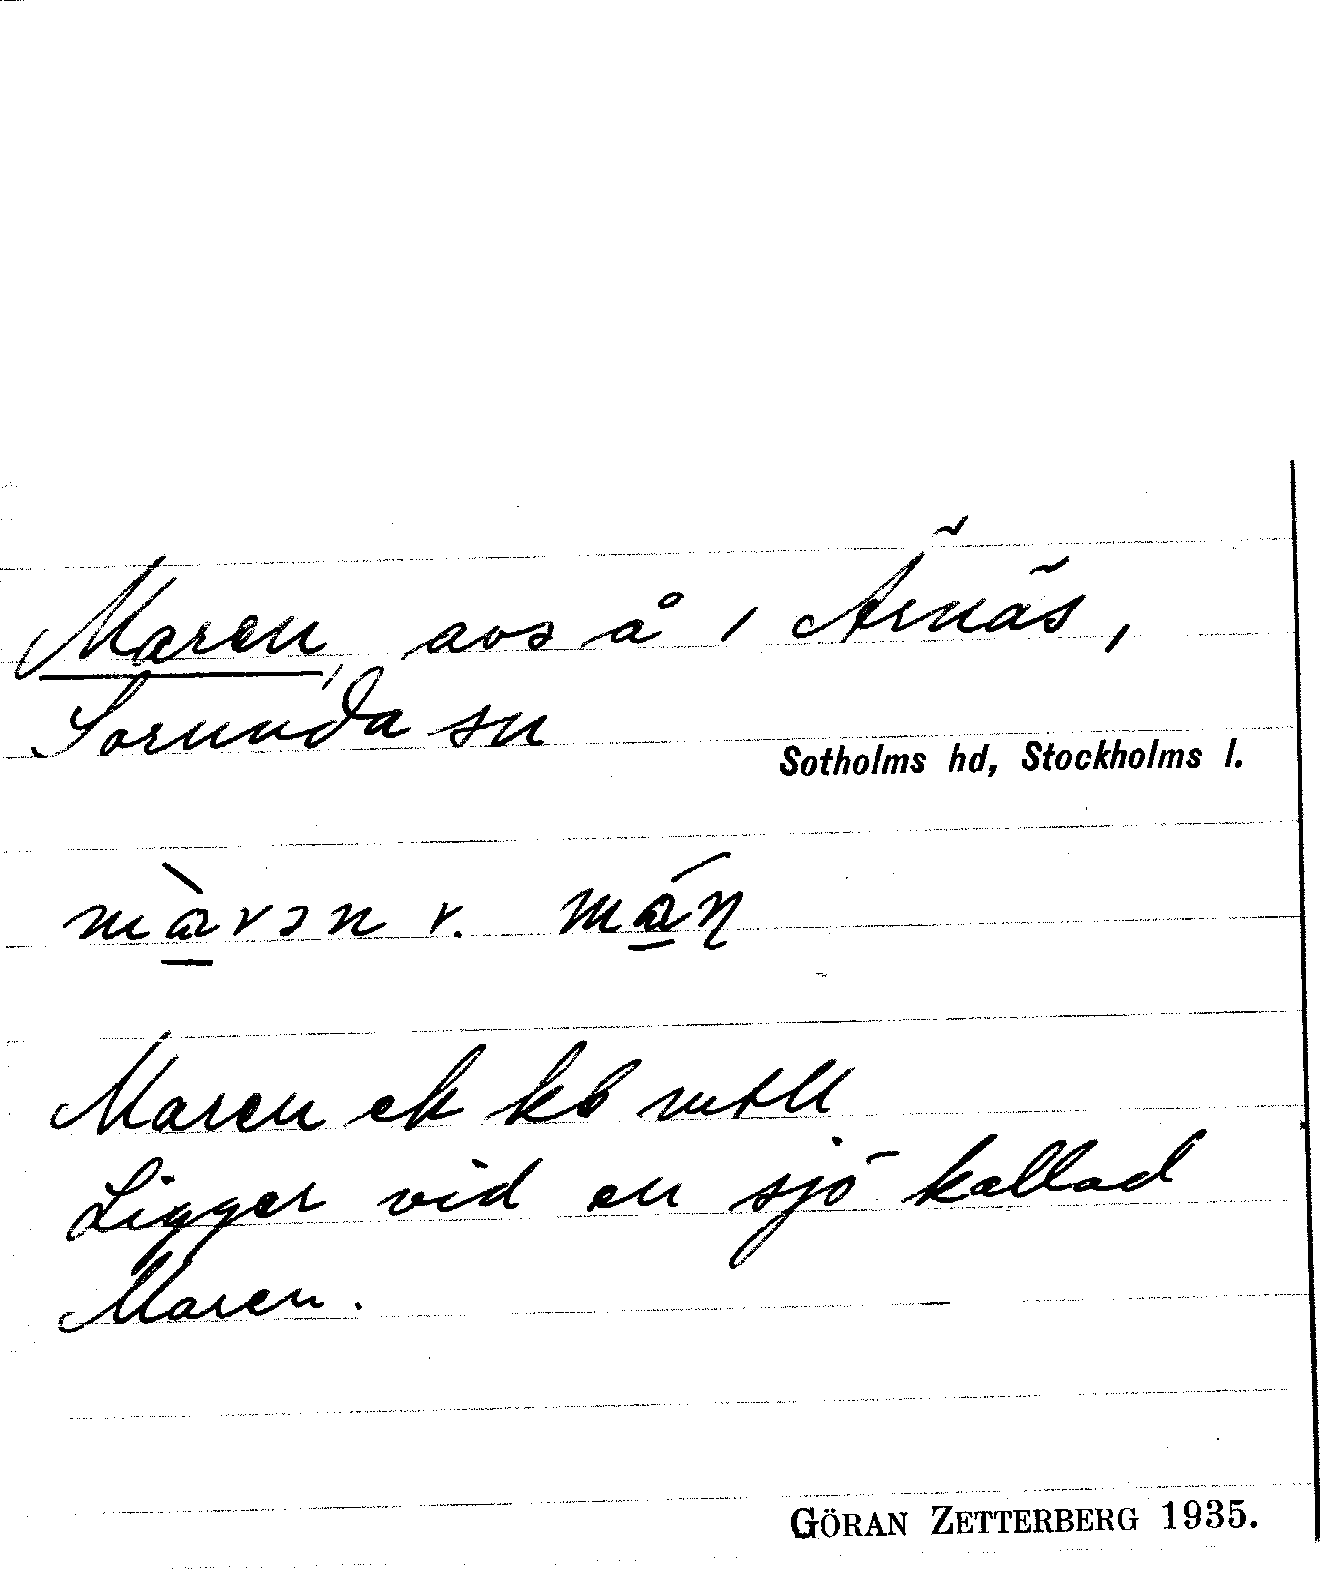 Maren, avs å 1 Ärnäs,
Sorunda sn
Sotholms hd, Stockholms l.
mɑ̀rən r. mɑ́ɳ
Maren ek kb mtll
Ligger vid en sjö kallad
Maren.
GÖRAN ZETTERBERG 1935.